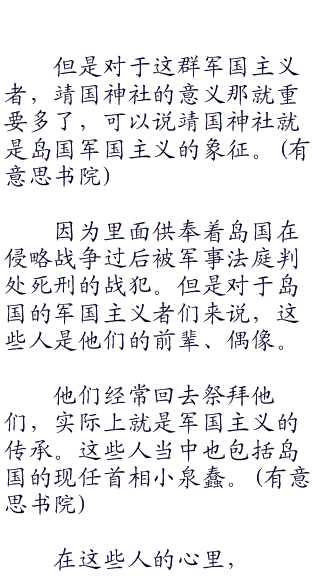 但是对于这群军国主义
者，靖国神社的意义那就重
要多了，可以说靖国神社就
是岛国军国主义的象征。(有
意思书院)
因为里面供奉着岛国在
侵略战争过后被军事法庭判
处死刑的战犯。但是对于岛
国的军国主义者们来说，这
些人是他们的前辈、偶像。
他们经常回去祭拜他
们，实际上就是军国主义的
传承。这些人当中也包括岛
国的现任首相小泉蠢。(有意
思书院)
在这些人的心里，